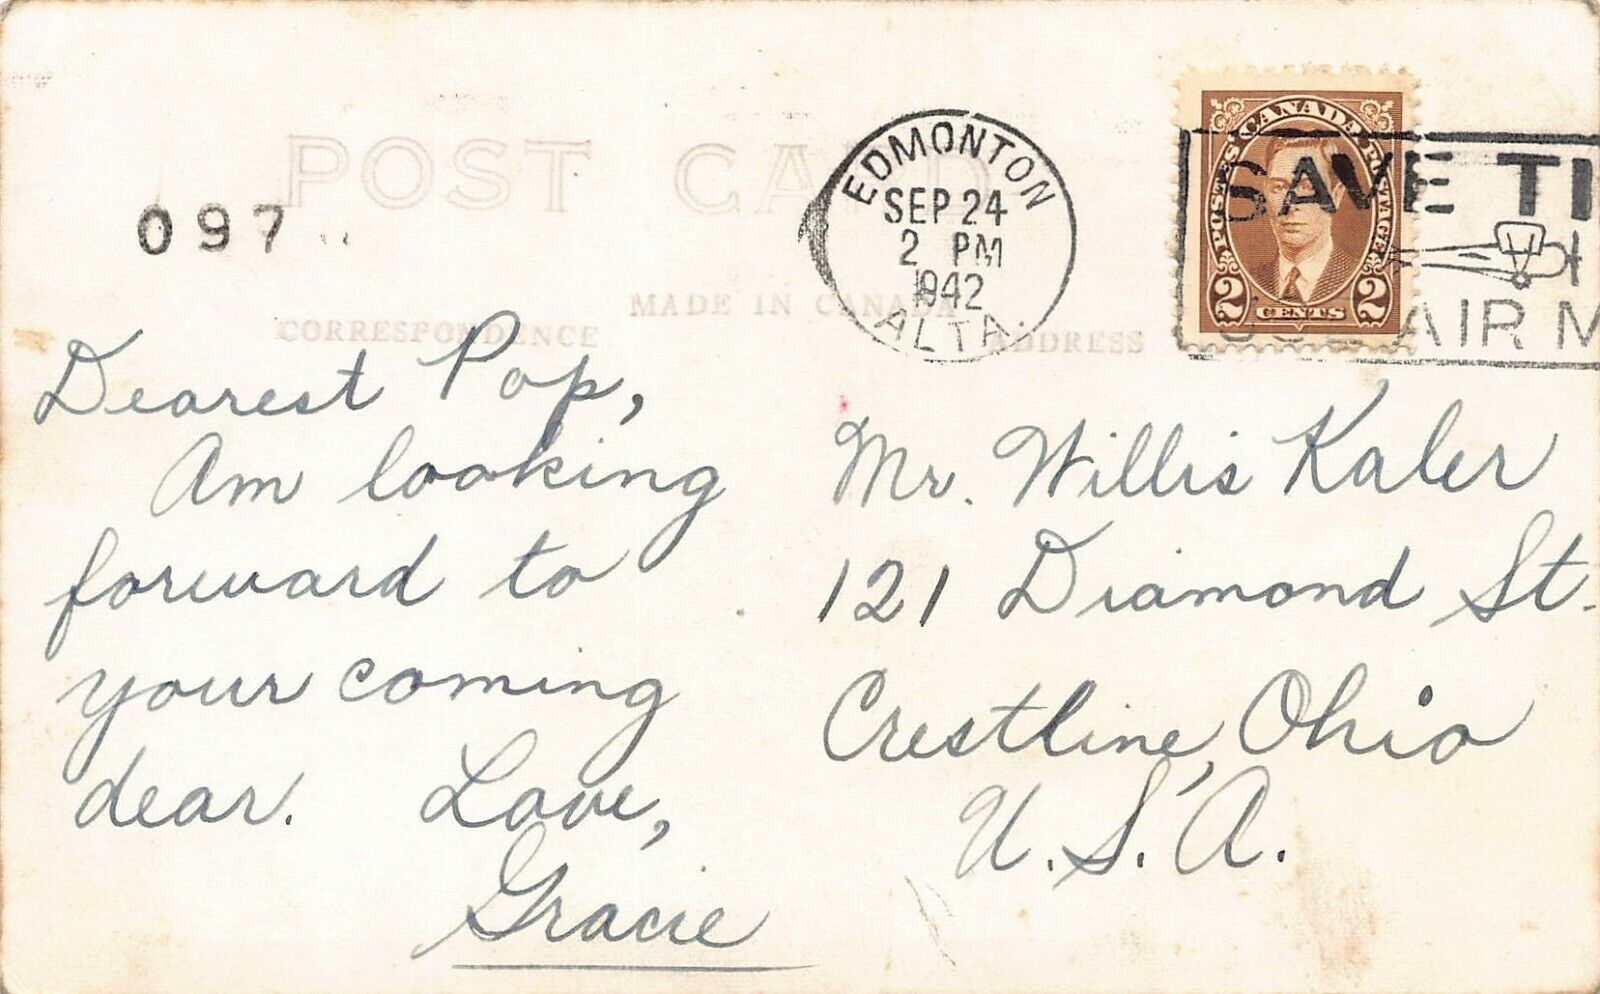 POST CARD
097
EDMONTON
SEP 24
2 PM
1942
ALTA.
CANADA
POSTES POSTAGE
2 CENTS 2
SAVE TI
AIR M
MADE IN CANADA
CORRESPONDENCE
ADDRESS
Dearest Pop,
Am looking
forward to
your coming
dear. Love,
Gracie
Mr. Willis Kaler
121 Diamond St.
Crestline, Ohio
U.S.A.